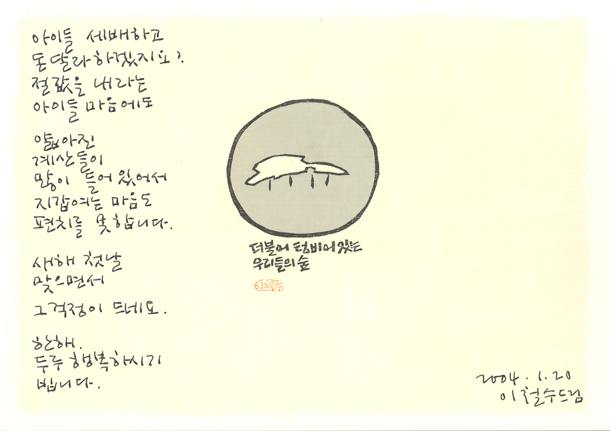 아이들 세배하고
돈 달라 하겠지요?
절값을 내라는
아이들 마음에도
얇아진
계산들이
많이 들어 있어서
지갑여는 마음도
편치를 못합니다.
새해 첫날
맞으면서
그 걱정이 드네요.
한해.
두루 행복하시기
빕니다.
더불어 텅비어있는
우리들의 숲
2004.1.20
이철수드림